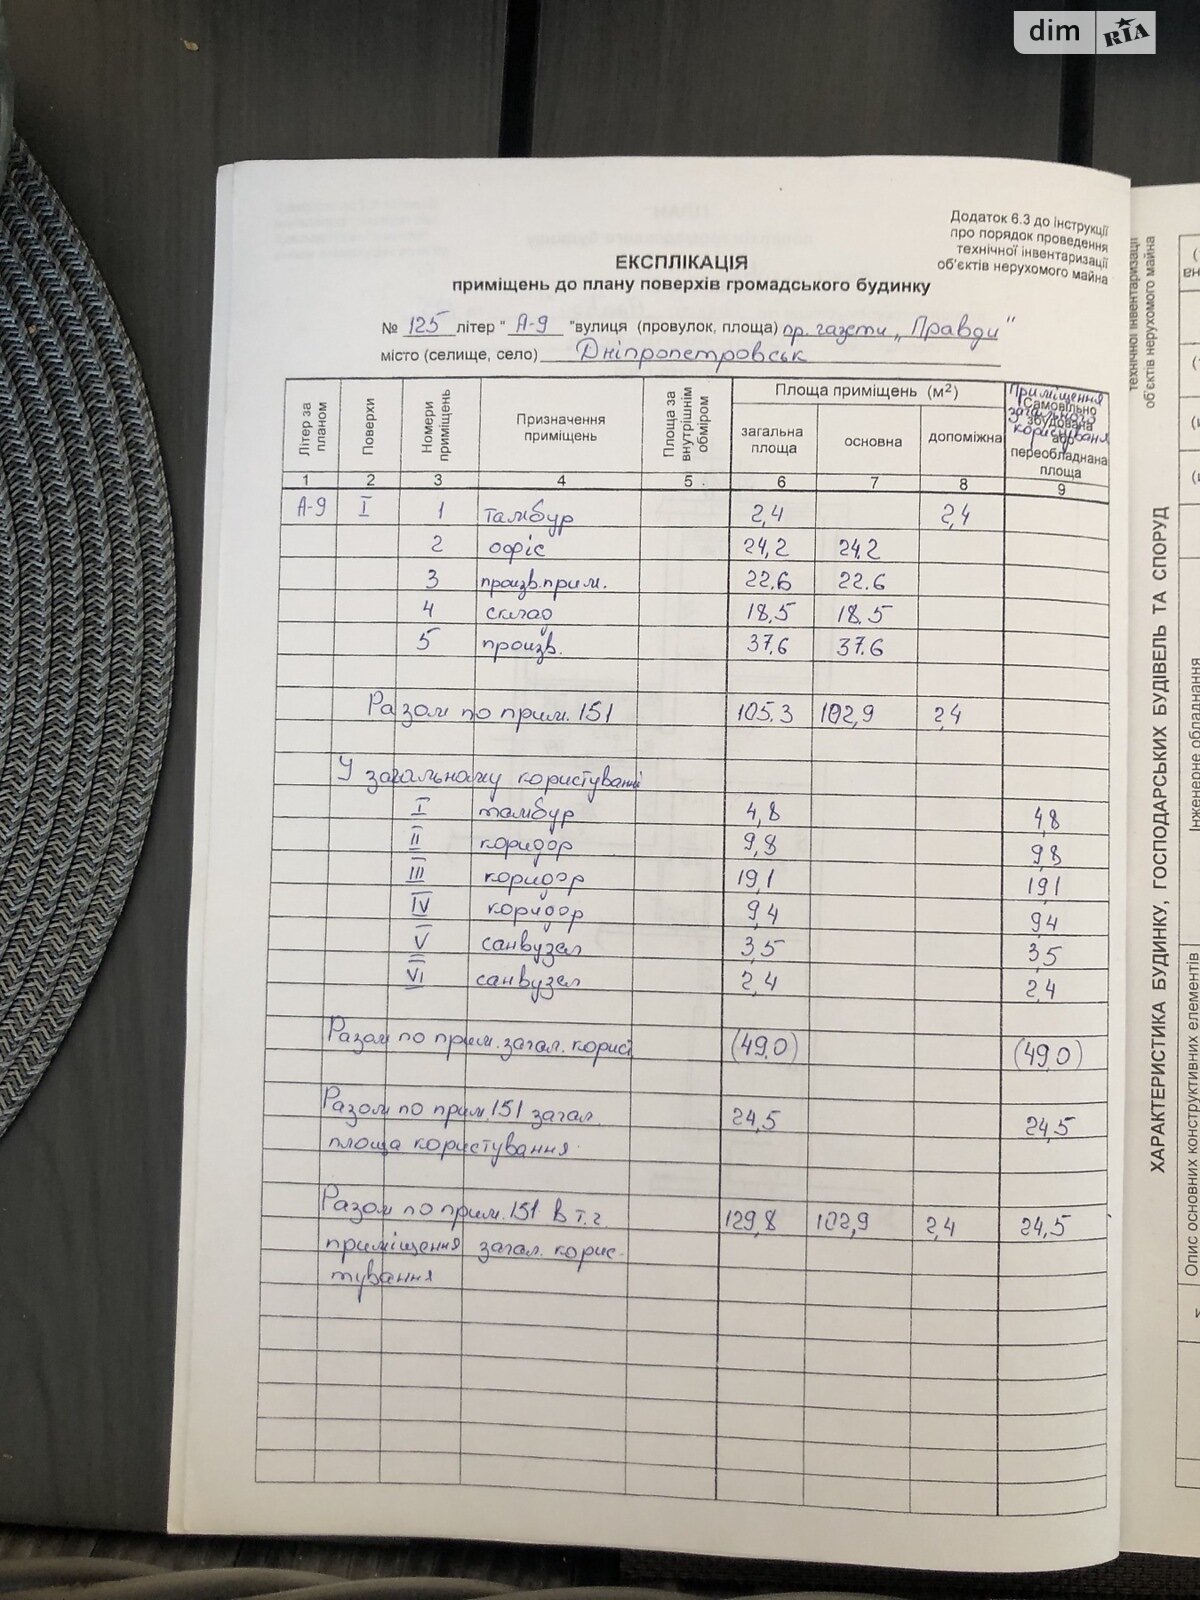 dim RIA
Додаток 6.3 до інструкції
про порядок проведення
технічної інвентаризації
об'єктів нерухомого майна
ЕКСПЛІКАЦІЯ
приміщень до плану поверхів громадського будинку
№ 125 літер " А-9 "вулиця (провулок, площа) пр. газети „Правди"
місто (селище, село) Дніпропетровськ
Літер за планом
Поверхи
Номери приміщень
Призначення приміщень
Площа за внутрішнім обміром
Площа приміщень (м²)
загальна площа
основна
допоміжна
Приміщення загального користуваня
Самовільно збудована або переобладнана площа
1 2 3 4 5 6 7 8 9
А-9 I 1 тамбур 2,4 2,4
2 офіс 24,2 24,2
3 произв.прим. 22.6 22.6
4 склад 18,5 18,5
5 произв. 37.6 37.6
Разом по прим. 151 105.3 102,9 2,4
У загальному користуванні
I тамбур 4,8 4,8
II коридор 9,8 9,8
III коридор 19,1 19,1
IV коридор 9,4 9,4
V санвузел 3,5 3,5
VI санвузел 2,4 2,4
Разом по прим. загал. корист (49,0) (49,0)
Разом по прим.151 загал. 24,5 24,5
площа користування.
Разом по прим.151 в т.ч. 129,8 102,9 2,4 24,5
приміщення загал. корис-
тування
технічної інвентаризації
об'єктів нерухомого майна
ХАРАКТЕРИСТИКА БУДИНКУ, ГОСПОДАРСЬКИХ БУДІВЕЛЬ ТА СПОРУД
нженерне обладнання
Опис основних конструктивних елементів